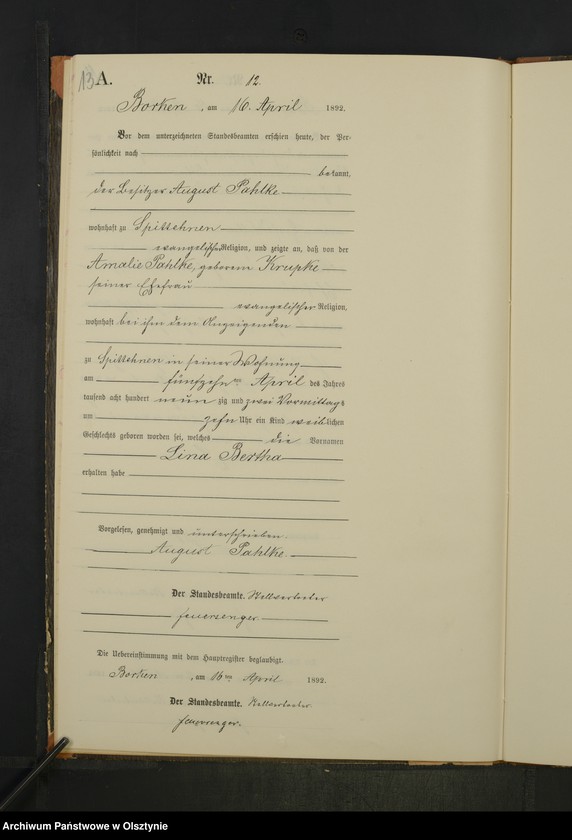 13 A.
Nr. 12.
Borken, am 16. April 1892.
Vor dem unterzeichneten Standesbeamten erschien heute, der Per-
sönlichkeit nach
bekannt,
der Besitzer August Pahlke
wohnhaft zu Spittehnen
evangelischer Religion, und zeigte an, daß von der
Amalie Pahlke, geborene Krupke
seiner Ehefrau
evangelischer Religion,
wohnhaft bei ihm dem Anzeigenden
zu Spittehnen in seiner Wohnung
am fünfzehnten April des Jahres
tausend acht hundert neunzig und zwei Vormittags
um zehn Uhr ein Kind weiblichen
Geschlechts geboren worden sei, welches die Vornamen
Lina Bertha
erhalten habe
Vorgelesen, genehmigt und unterschrieben.
August Pahlke
Der Standesbeamte. Stellvertreter
Feuersenger
Die Uebereinstimmung mit dem Hauptregister beglaubigt.
Borken, am 16ten April 1892.
Der Standesbeamte. Stellvertreter
Feuersenger.
Archiwum Państwowe w Olsztynie